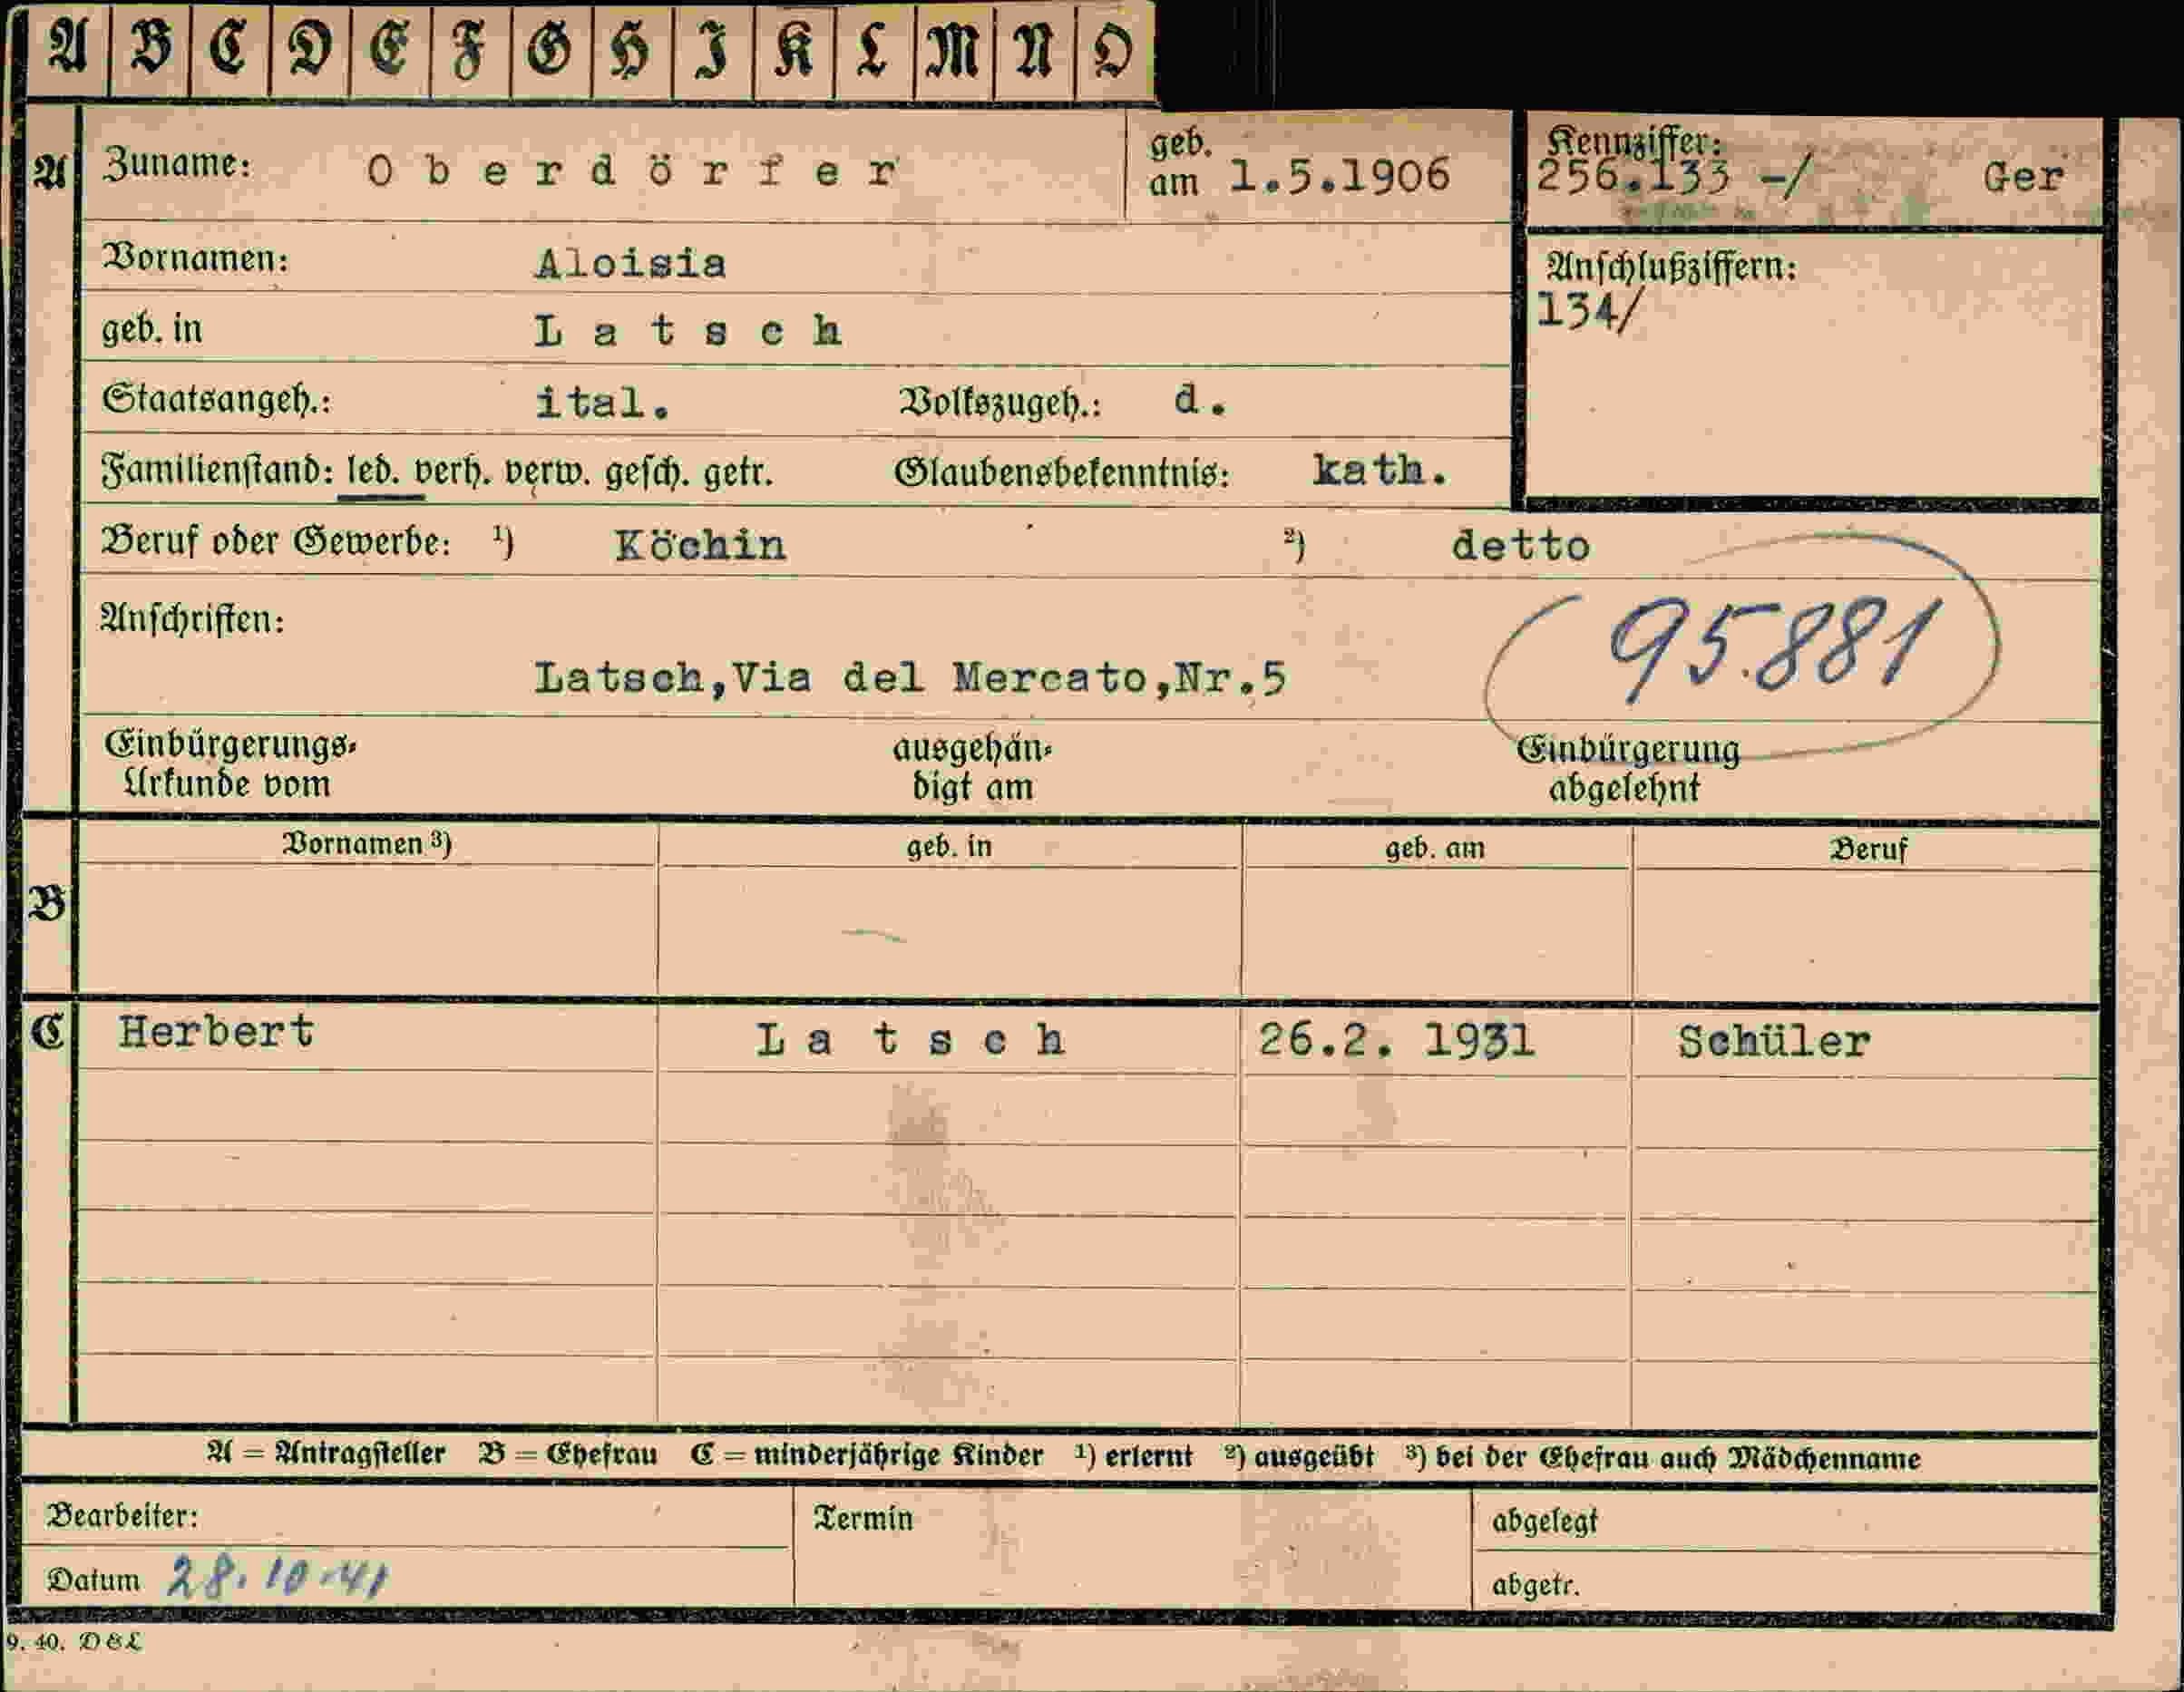 A B C D E F G H I K L M N O
A Zuname: Oberdörfer geb. am 1.5.1906 Kennziffer: 256.133 -/ Ger
Vornamen: Aloisia Anschlußziffern:
134/
geb. in Latsch
Staatsangeh.: ital. Volkszugeh.: d.
Familienstand: led. verh. verw. gesch. getr. Glaubensbekenntnis: kath.
Beruf oder Gewerbe: ¹) Köchin ²) detto
Anschriften: 95.881
Latsch,Via del Mercato,Nr.5
Einbürgerungs- ausgehän- Einbürgerung
Urkunde vom digt am abgelehnt
Vornamen ³) geb. in geb. am Beruf
B
C Herbert Latsch 26.2. 1931 Schüler
A = Antragsteller B = Ehefrau C = minderjährige Kinder ¹) erlernt ²) ausgeübt ³) bei der Ehefrau auch Mädchenname
Bearbeiter: Termin abgelegt
Datum 28.10.41 abgetr.
9. 40. D&L